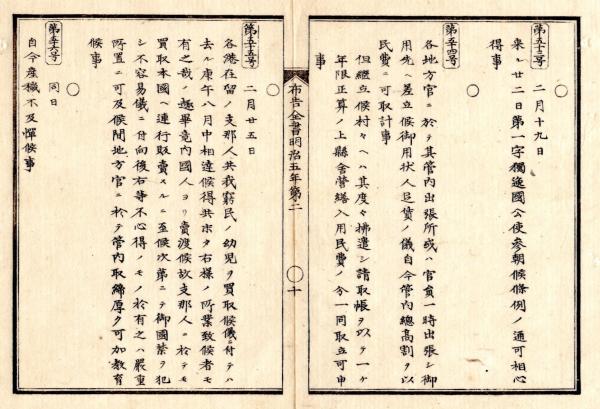 第五十三号 二月十九日
来ル廿二日第一字獨逸國公使参朝候條例ノ通可相心
得事
第五十四号
各地方官ニ於テ其管内出張所或ハ官員一時出張シ御
用先ヘ差立候御用状人足賃ノ儀自今管内總高割ヲ以
民費ニ可取計事
但繼立候村々ヘハ其度々拂遣シ請取帳ヲ以テ一ケ
年限正算ノ上縣舎營繕入用民費ノ分一同取立可申
事
布告全書明治五年第二
十
第五十五号 二月廿五日
各港在留ノ支那人共我窮民ノ幼児ヲ買取候儀ニ付テハ
去ル庚午八月中相達候得共亦タ右様ノ所業致候者モ
有之哉ノ趣畢竟内國人ヨリ賣渡候故支那人ニ於テモ
買取本國ヘ連行販賣スルニ至候次第ニテ御國禁ヲ犯
シ不容易儀ニ付向後右等不心得ノモノ於有之ハ嚴重
所置ニ可及候間地方官ニ於テ管内取締厚ク可加教育
候事
第五十六号 同日
自今産穢不及憚候事